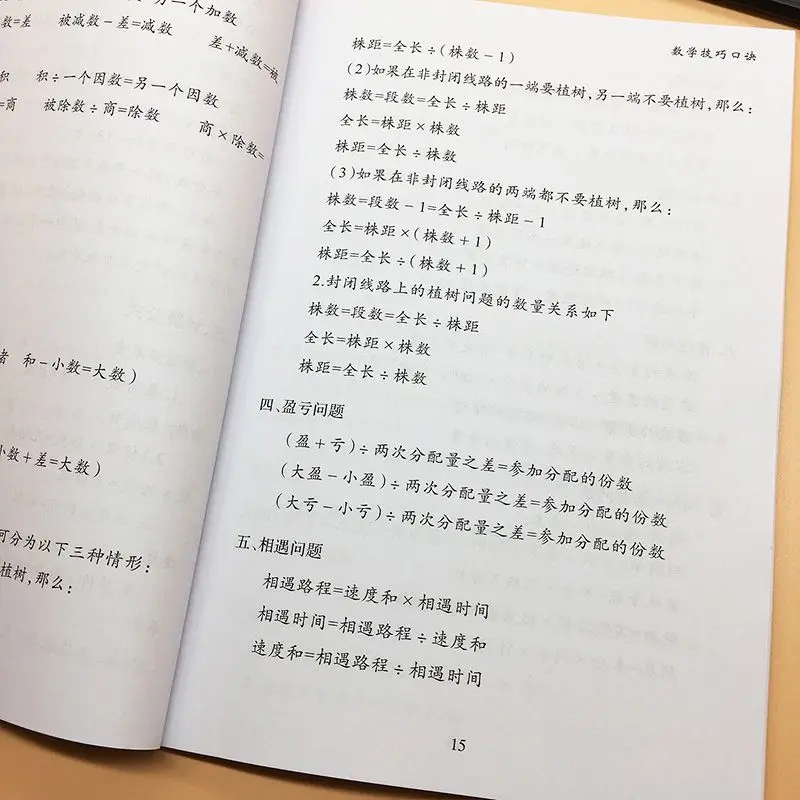 另一个加数
数=差 被减数-差=减数 差+减数=被
积 积÷一个因数=另一个因数
=商 被除数÷商=除数 商×除数=
者 和-小数=大数)
小数+差=大数)
可分为以下三种情形:
植树,那么:
数学技巧口诀
株距=全长÷(株数-1)
(2)如果在非封闭线路的一端要植树,另一端不要植树,那么:
株数=段数=全长÷株距
全长=株距×株数
株距=全长÷株数
(3)如果在非封闭线路的两端都不要植树,那么:
株数=段数-1=全长÷株距-1
全长=株距×(株数+1)
株距=全长÷(株数+1)
2.封闭线路上的植树问题的数量关系如下
株数=段数=全长÷株距
全长=株距×株数
株距=全长÷株数
四、盈亏问题
(盈+亏)÷两次分配量之差=参加分配的份数
(大盈-小盈)÷两次分配量之差=参加分配的份数
(大亏-小亏)÷两次分配量之差=参加分配的份数
五、相遇问题
相遇路程=速度和×相遇时间
相遇时间=相遇路程÷速度和
速度和=相遇路程÷相遇时间
15